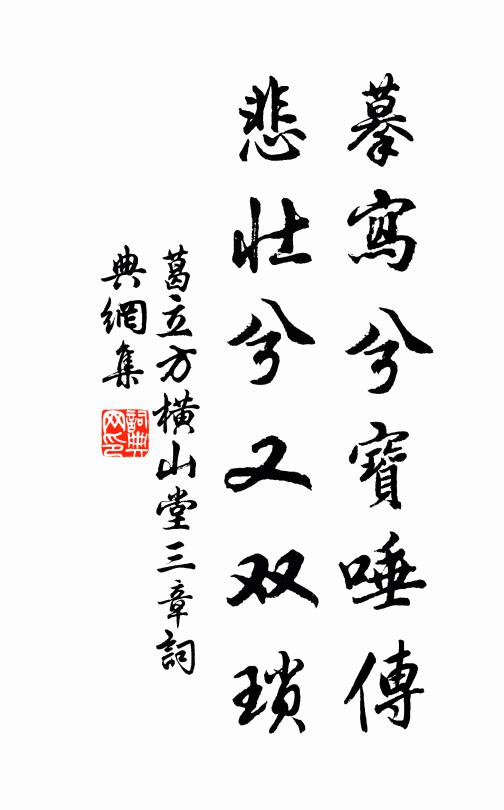 摹寫兮寶唾傳
悲壯兮又双瑣
葛立方橫山堂三章詞
典網集
詞典网印